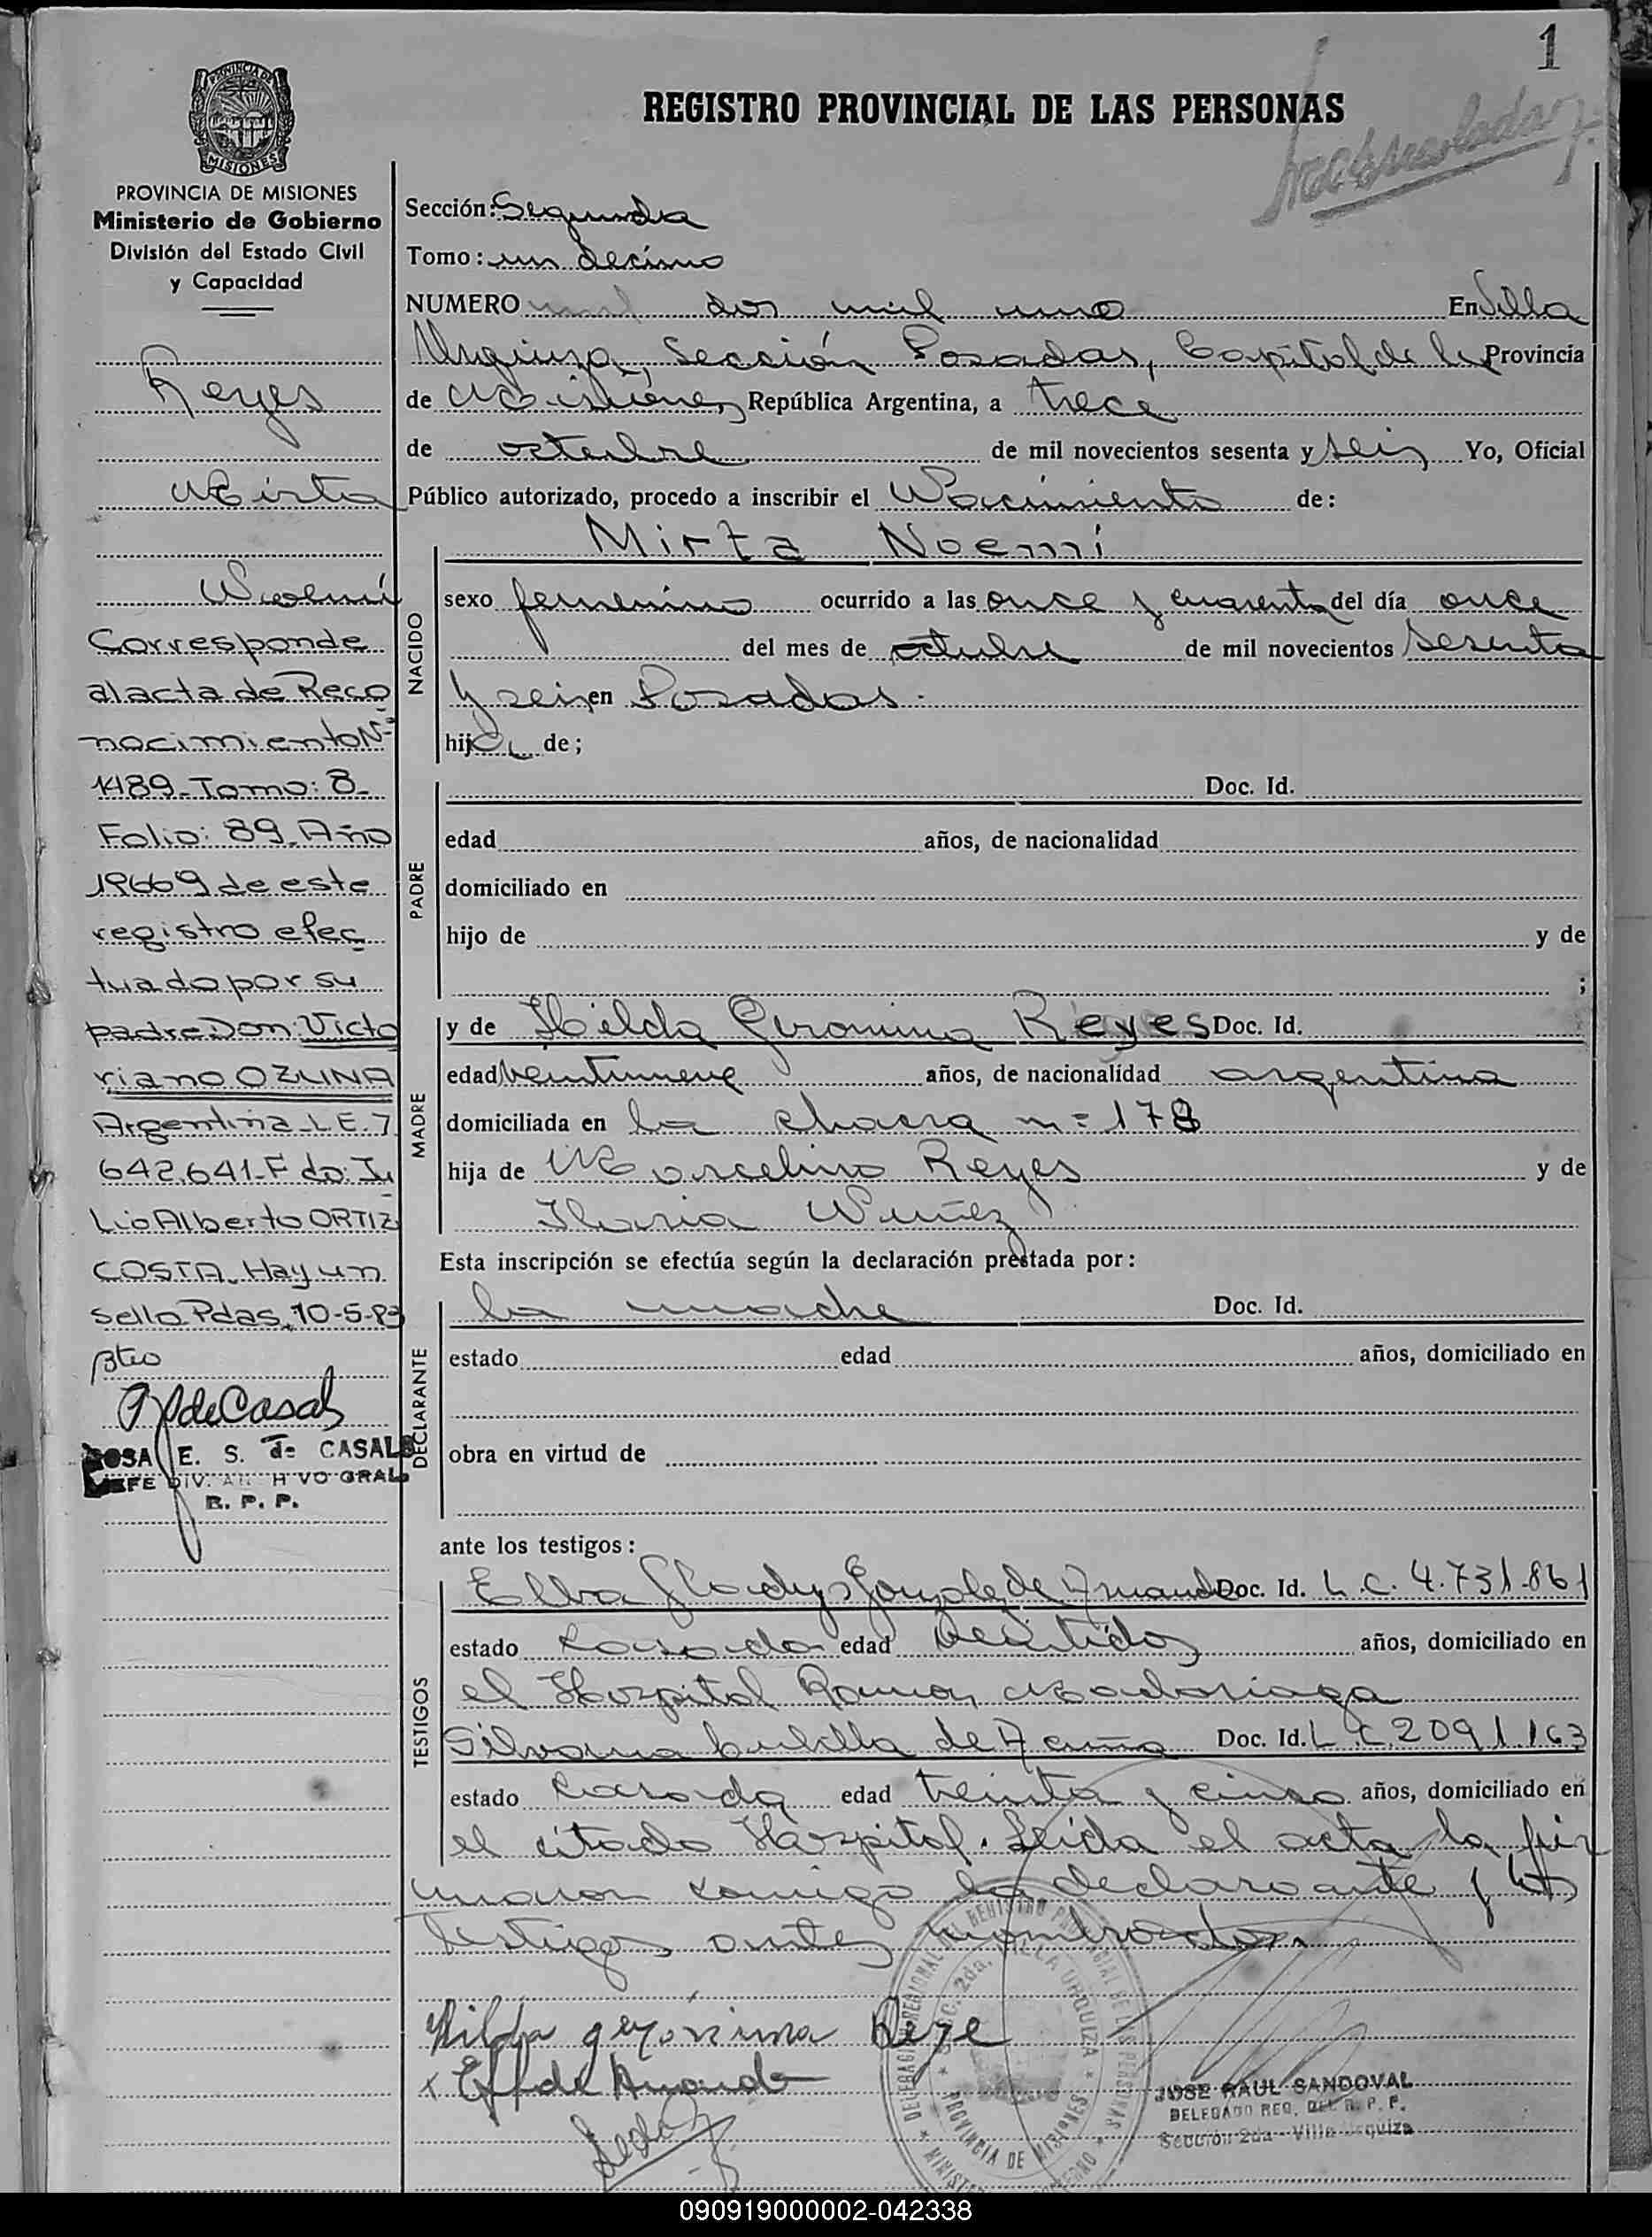 1
REGISTRO PROVINCIAL DE LAS PERSONAS
PROVINCIA DE
MISIONES
PROVINCIA DE MISIONES
Ministerio de Gobierno
División del Estado Civil
y Capacidad
Reyes
Mirta
Noemí
Corresponde
al acta de Reco
nocimiento Nº
1489-Tomo: 8-
Folio: 89. Año
19669 de este
registro efec
tuado por su
padre Don: Victo
riano OZUNA
Argentina L.E. 7
642.641-Fdo: Ju
lio Alberto ORTIZ
COSTA. Hay un
sello Pdas. 10-5-83
RdeCasals
ROSA E. S. de CASALS
JEFE DIV. ARCHIVO GRAL
R. P. P.
Sección: Segunda
Tomo: un decimo
NUMERO dos mil uno En Villa
Urquiza, Sección Posadas, Capital de la Provincia
de Misiones, República Argentina, a trece
de octubre de mil novecientos sesenta y seis Yo, Oficial
Público autorizado, procedo a inscribir el Nacimiento de:
NACIDO
Mirta Noemí
sexo femenino ocurrido a las once y cuarenta del día once
del mes de octubre de mil novecientos sesenta
y seis en Posadas.
hija de;
PADRE
Doc. Id.
edad años, de nacionalidad
domiciliado en
hijo de y de
;
MADRE
y de Hilda Geronima Reyes Doc. Id.
edad veintinueve años, de nacionalidad argentina
domiciliada en la chacra nº 178
hija de Marcelino Reyes y de
Ilaria Nuñez
Esta inscripción se efectúa según la declaración prestada por:
DECLARANTE
la madre Doc. Id.
estado edad años, domiciliado en
obra en virtud de
ante los testigos:
TESTIGOS
Elba Gladys Gonzalez de Amanda Doc. Id. L.C. 4.731.861
estado Casada edad Veintidos años, domiciliado en
el Hospital Ramon Madariaga
Silvana de Acuña Doc. Id. L.C. 2091163
estado Casada edad treinta y cinco años, domiciliado en
el citado Hospital. Leida el acta la fir
maron conmigo la declarante y los
testigos antes nombrados.
Hilda geronima Reye
DELEGACION REGIONAL DEL REGISTRO PROVINCIAL DE LAS PERSONAS
SEC. 2da. VILLA URQUIZA
PROVINCIA DE MISIONES
JOSE RAUL SANDOVAL
DELEGADO REG. DEL R. P. P.
Sección 2da - Villa Urquiza
090919000002-042338